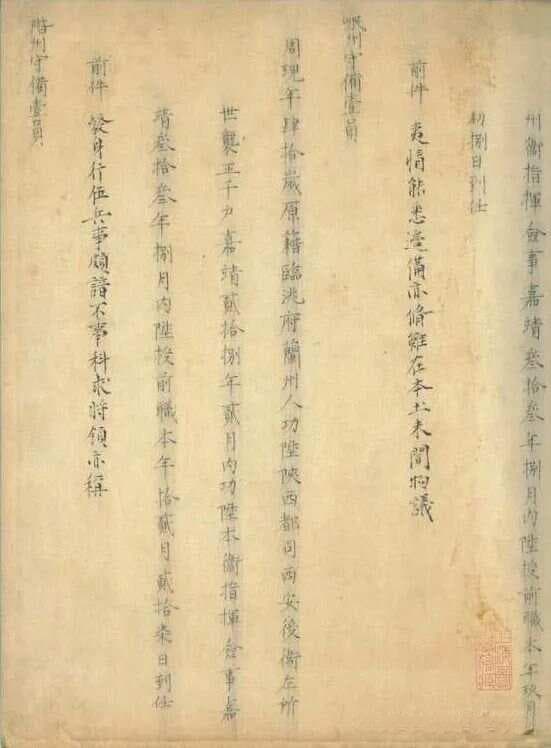 州衛指揮僉事嘉靖叁拾叁年捌月內陞授前職本年玖月
初捌日到任
前件 夷情能悉邊備亦脩雖在本土未聞物議
岷州守備壹員
周現年肆拾歲原籍臨洮府蘭州人功陞陝西都司西安後衛左所
世襲正千户嘉靖貳拾捌年貳月內功陞本衛指揮僉事嘉
靖叁拾叁年捌月內陞授前職本年拾貳月貳拾柒日到任
前件 發身行伍兵事頗諳不事科求將領亦稱
階州守備壹員